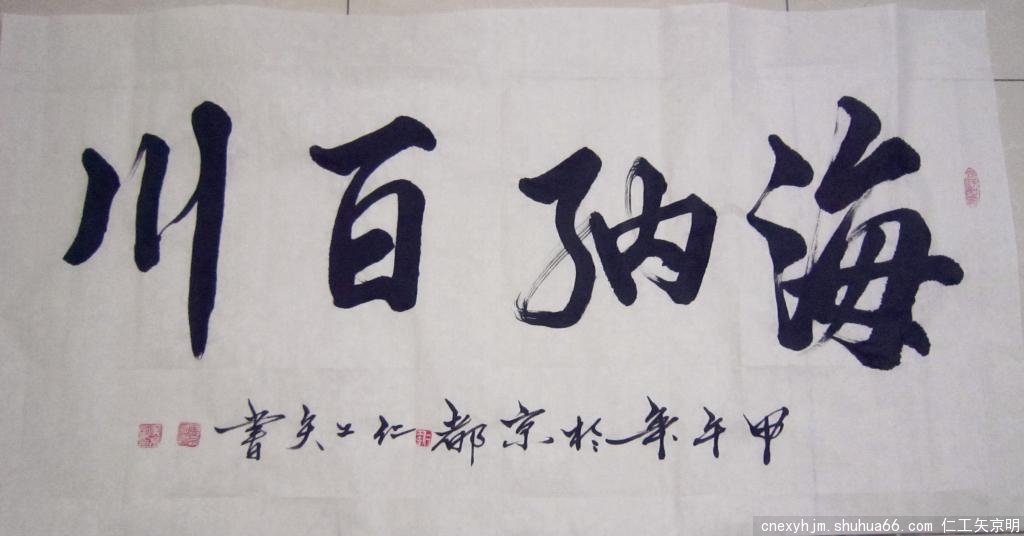 海纳百川
甲午年於京都仁工矢書
cnexyhjm.shuhua66.com 仁工矢京明